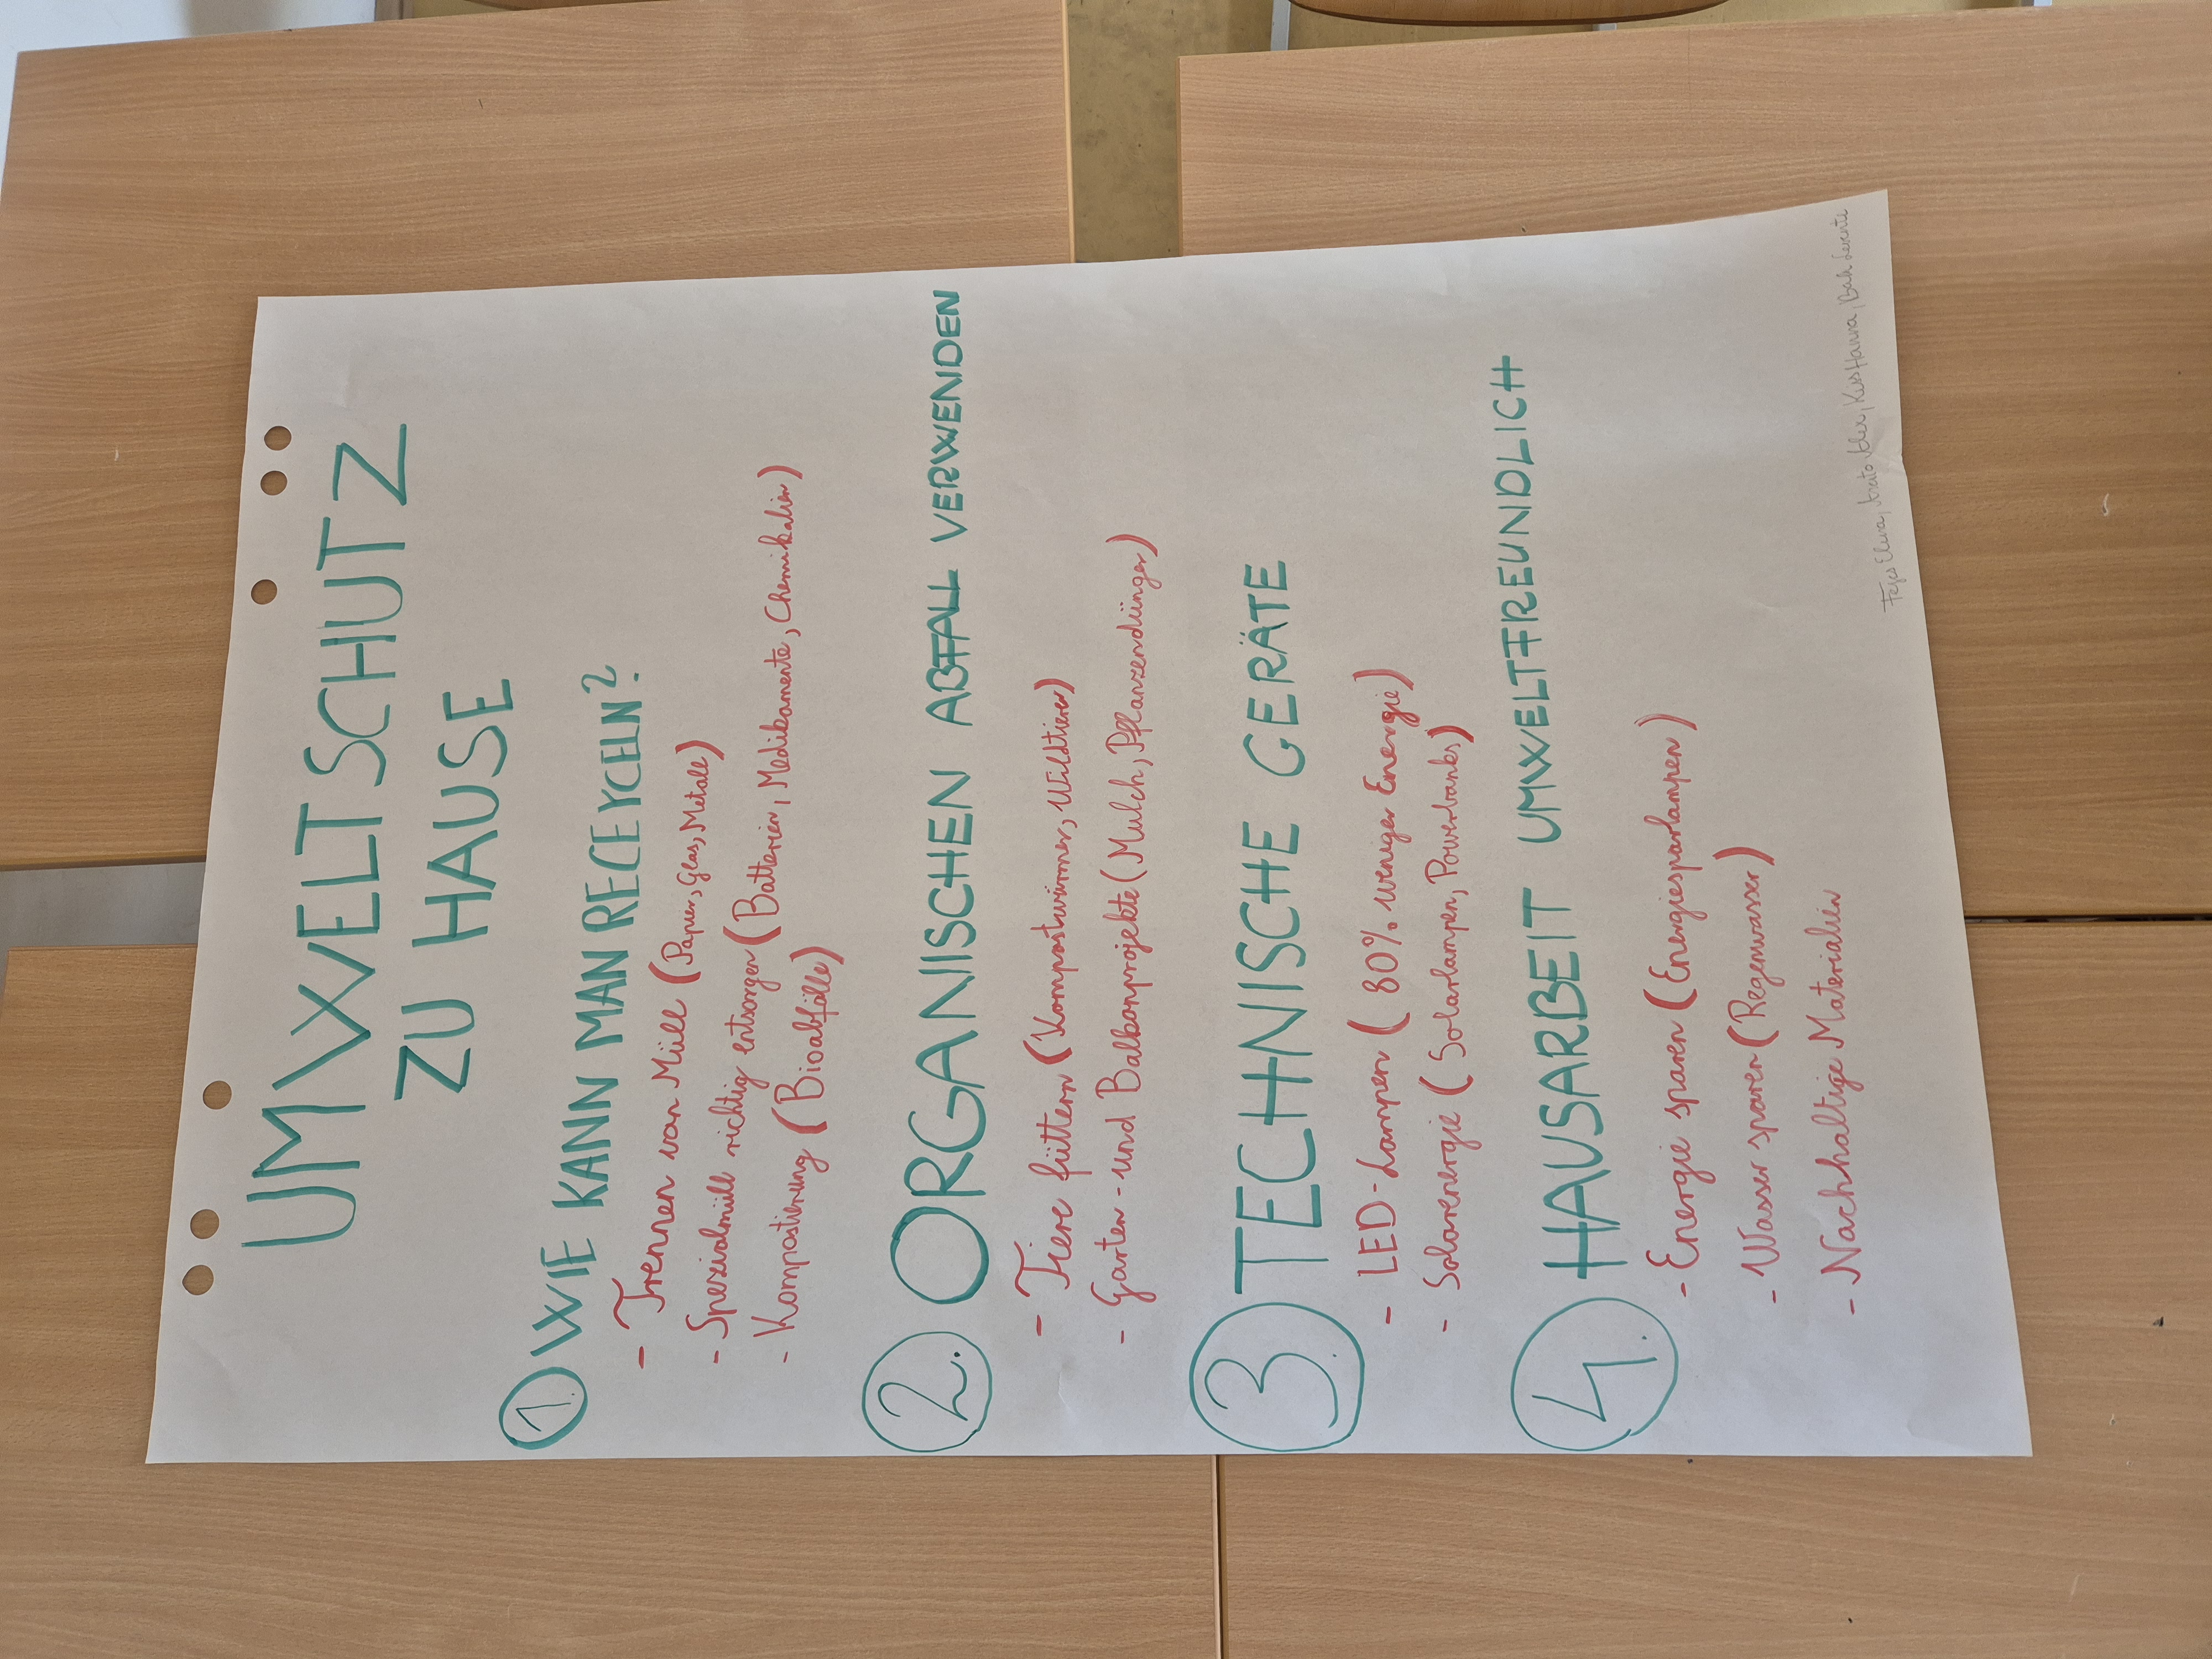 UMWELTSCHUTZ
ZU HAUSE
1. WIE KANN MAN RECEYCELN?
- Trennen von Müll (Papier, Glas, Metale)
- Spezialmüll richtig entsorgen (Batterien, Medikamente, Chemikalien)
- Kompostierung (Bioabfälle)
2. ORGANISCHEN ABFALL VERWENDEN
- Tiere füttern (Kompostwürmer, Wildtiere)
- Garten- und Balkonprojekte (Mulch, Pflanzendünger)
3. TECHNISCHE GERÄTE
- LED-Lampen (80% weniger Energie)
- Solarenergie (Solarlampen, Powerbanks)
4. HAUSARBEIT UMWELTFREUNDLICH
- Energie sparen (Energiesparlampen)
- Wasser sparen (Regenwasser)
- Nachhaltige Materialien
Kiss Hanna, Levente